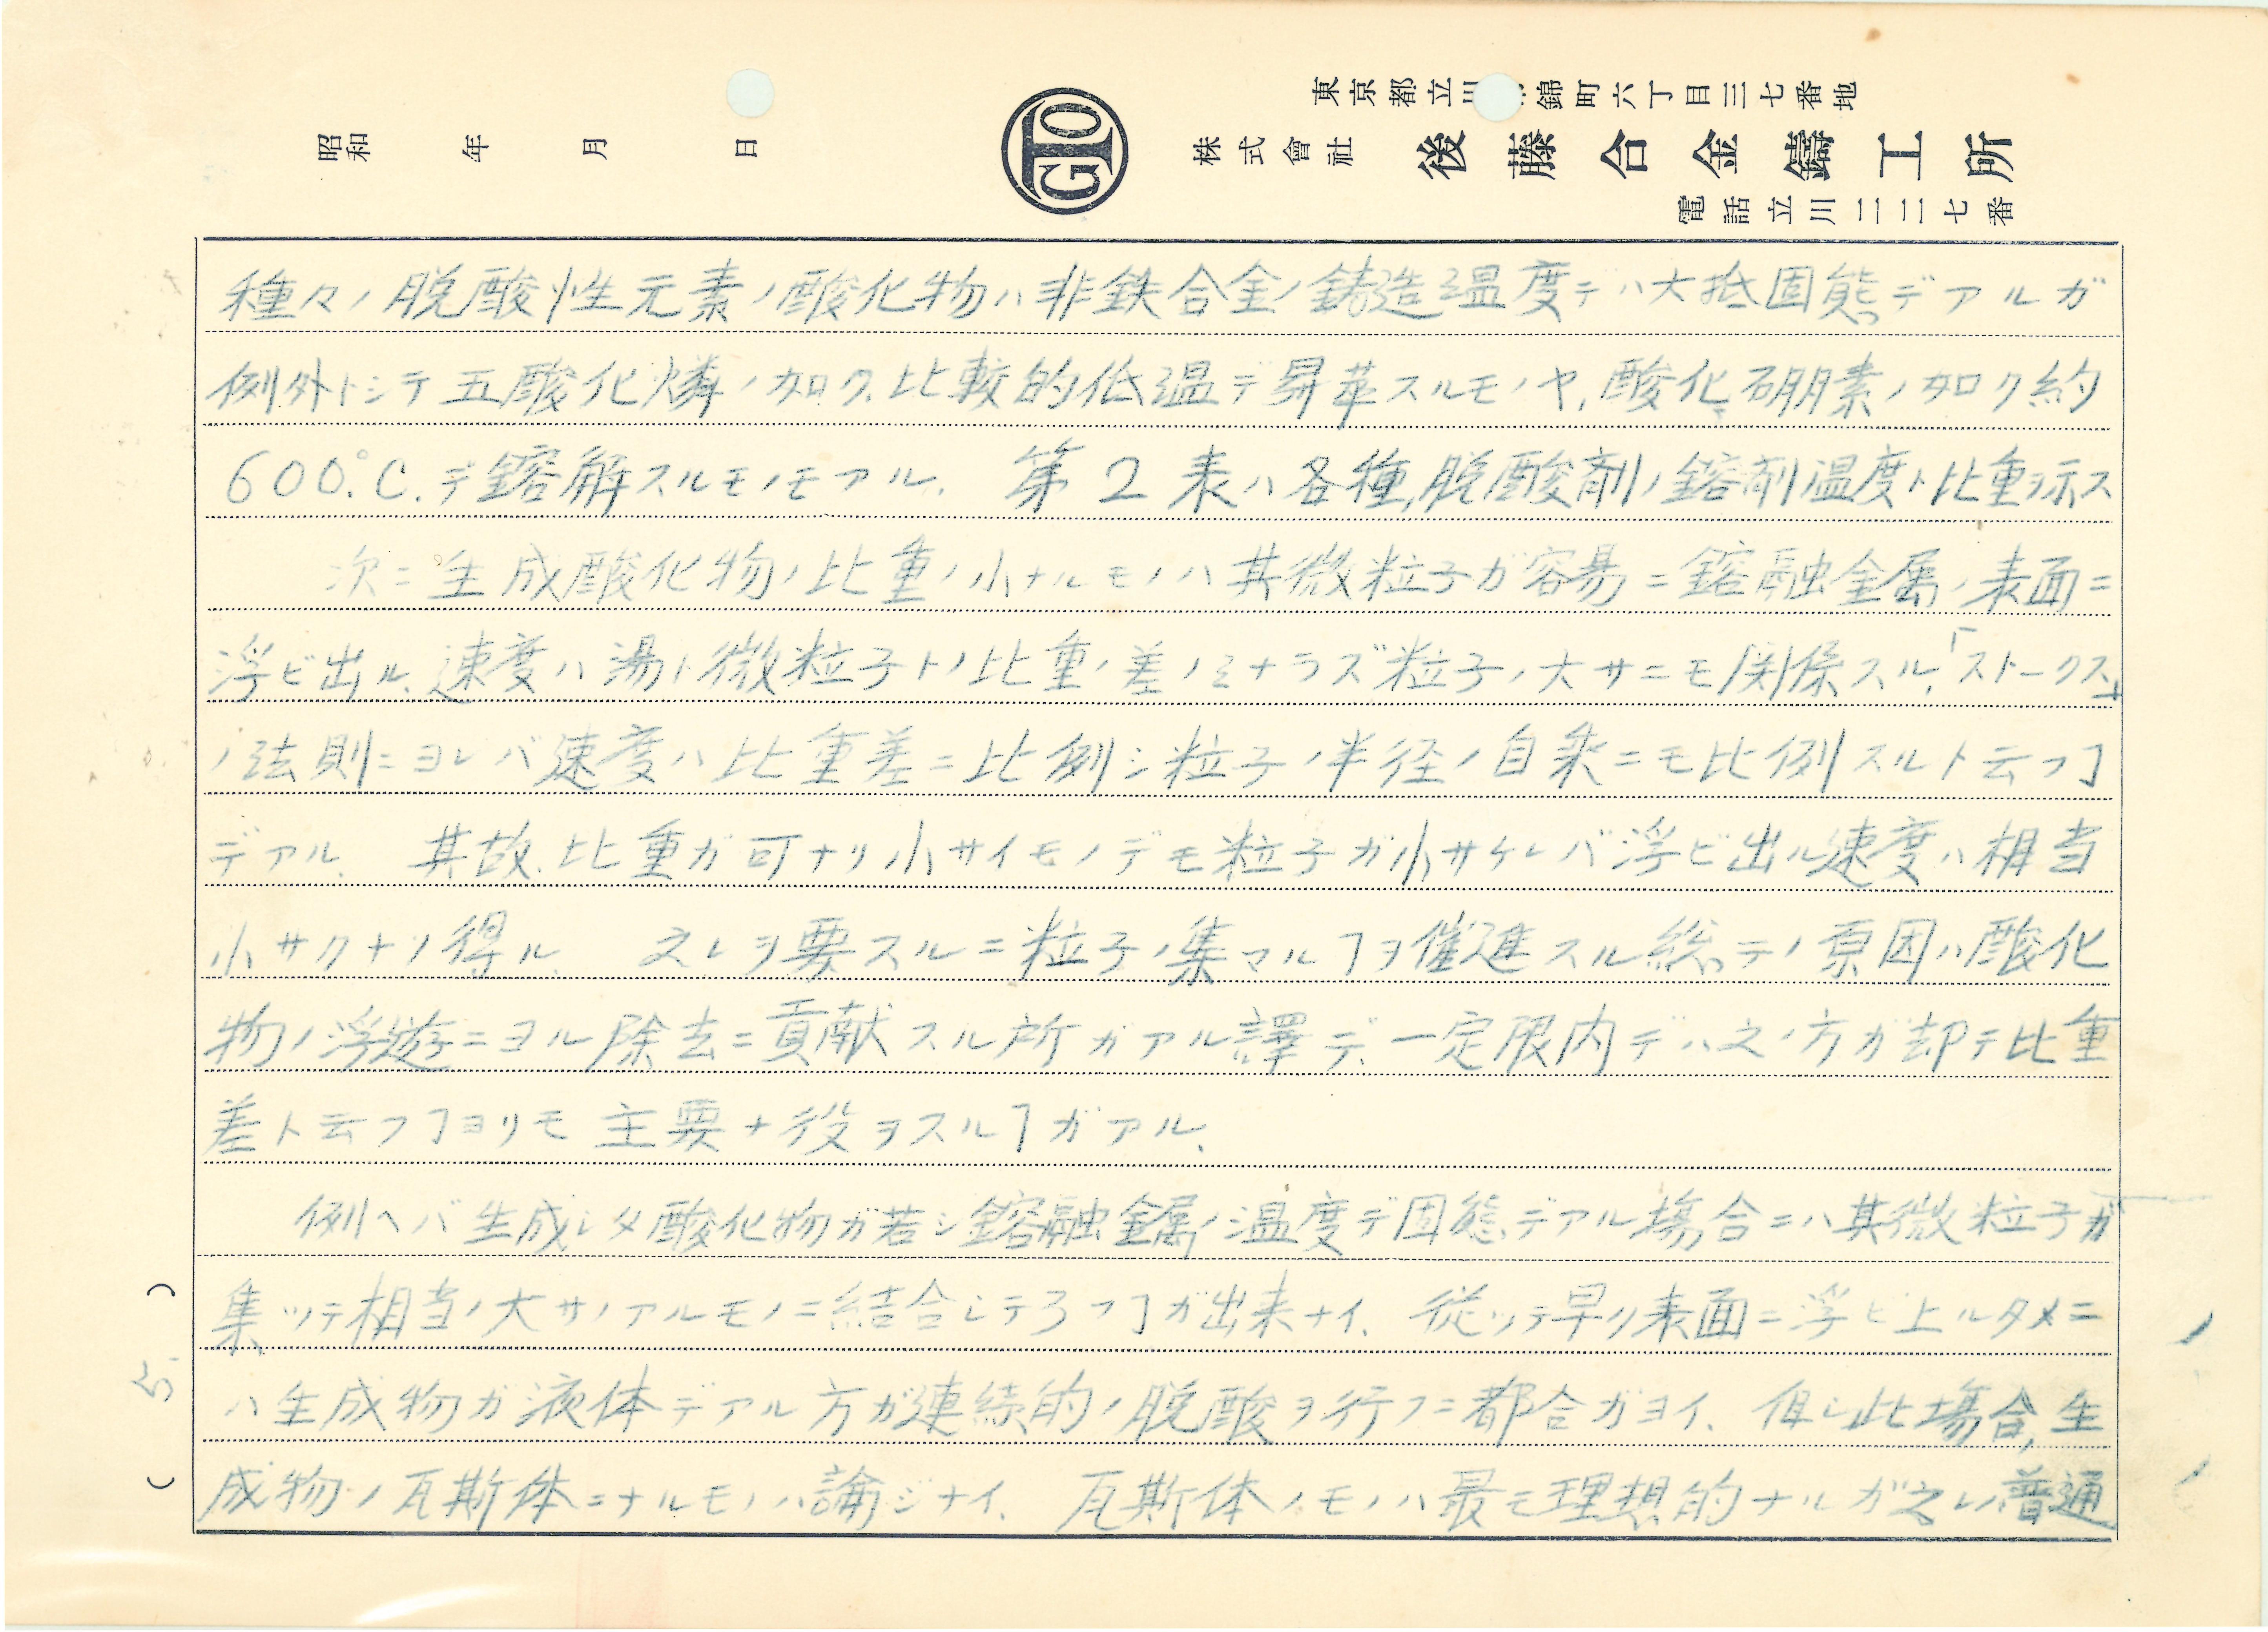 東京都立川市錦町六丁目三七番地
株式會社 後藤合金鑄工所
電話立川二二七番
GTO
昭和 年 月 日
種々ノ脱酸性元素ノ酸化物ハ非鉄合金ノ鋳造温度デハ大抵固態デアルガ
例外トシテ五酸化燐ノ如ク、比較的低温デ昇華スルモノヤ、酸化硼素ノ如ク約
600°C.デ鎔解スルモノモアル、 第2表ハ各種脱酸剤ノ鎔剤温度ト比重ヲ示ス
次ニ生成酸化物ノ比重ノ小ナルモノハ其微粒子ガ容易ニ鎔融金属ノ表面ニ
浮ビ出ル、速度ハ湯ト微粒子トノ比重ノ差ノミナラズ粒子ノ大サニモ関係スル、「ストークス」
ノ法則ニヨレバ速度ハ比重差ニ比例シ粒子ノ半径ノ自乗ニモ比例スルト云フヿ
デアル、 其故、比重ガ可ナリ小サイモノデモ粒子ガ小サケレバ浮ビ出ル速度ハ相当
小サクナリ得ル、 之レヲ要スルニ粒子ノ集マルヿヲ催進スル総テノ原因ハ酸化
物ノ浮遊ニヨル除去ニ貢献スル所ガアル譯デ、一定限内デハ之ノ方ガ却テ比重
差ト云フヿヨリモ主要ナ役ヲスルヿガアル、
例ヘバ生成シタ酸化物ガ若シ鎔融金属ノ温度デ固態デアル場合ニハ其微粒子ガ
集ツテ相当ノ大サノアルモノニ結合シテ フヿガ出来ナイ、 従ツテ早ク表面ニ浮ビ上ルタメニ
ハ生成物ガ液体デアル方ガ連続的ノ脱酸ヲ行フニ都合ガヨイ、 但シ此場合、生
成物ノ瓦斯体ニナルモノハ論ジナイ、 瓦斯体ノモノハ最モ理想的ナルガ之レハ普通
( 5. )